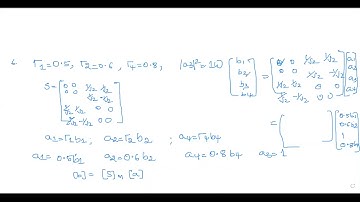 Γ2=0.5, Γ2=0.6, Γ4=0.8,
b1
b2
b3
b4
=
0 0 1/√2 1/√2
0 0 1/√2 -1/√2
1/√2 1/√2 0 0
1/√2 -1/√2 0 0
a1
a2
a3
S=
0 0 1/√2 1/√2
0 0 1/√2 -1/√2
1/√2 1/√2 0 0
1/√2 -1/√2 0 0
a1=Γ1b1, a2=Γ2b2, a4=Γ4b4
a1=0.5b1 a2=0.6b2 a4=0.8b4 a3=1
=
0.5b1
0.6b2
1
0.8b4
[S] [a]